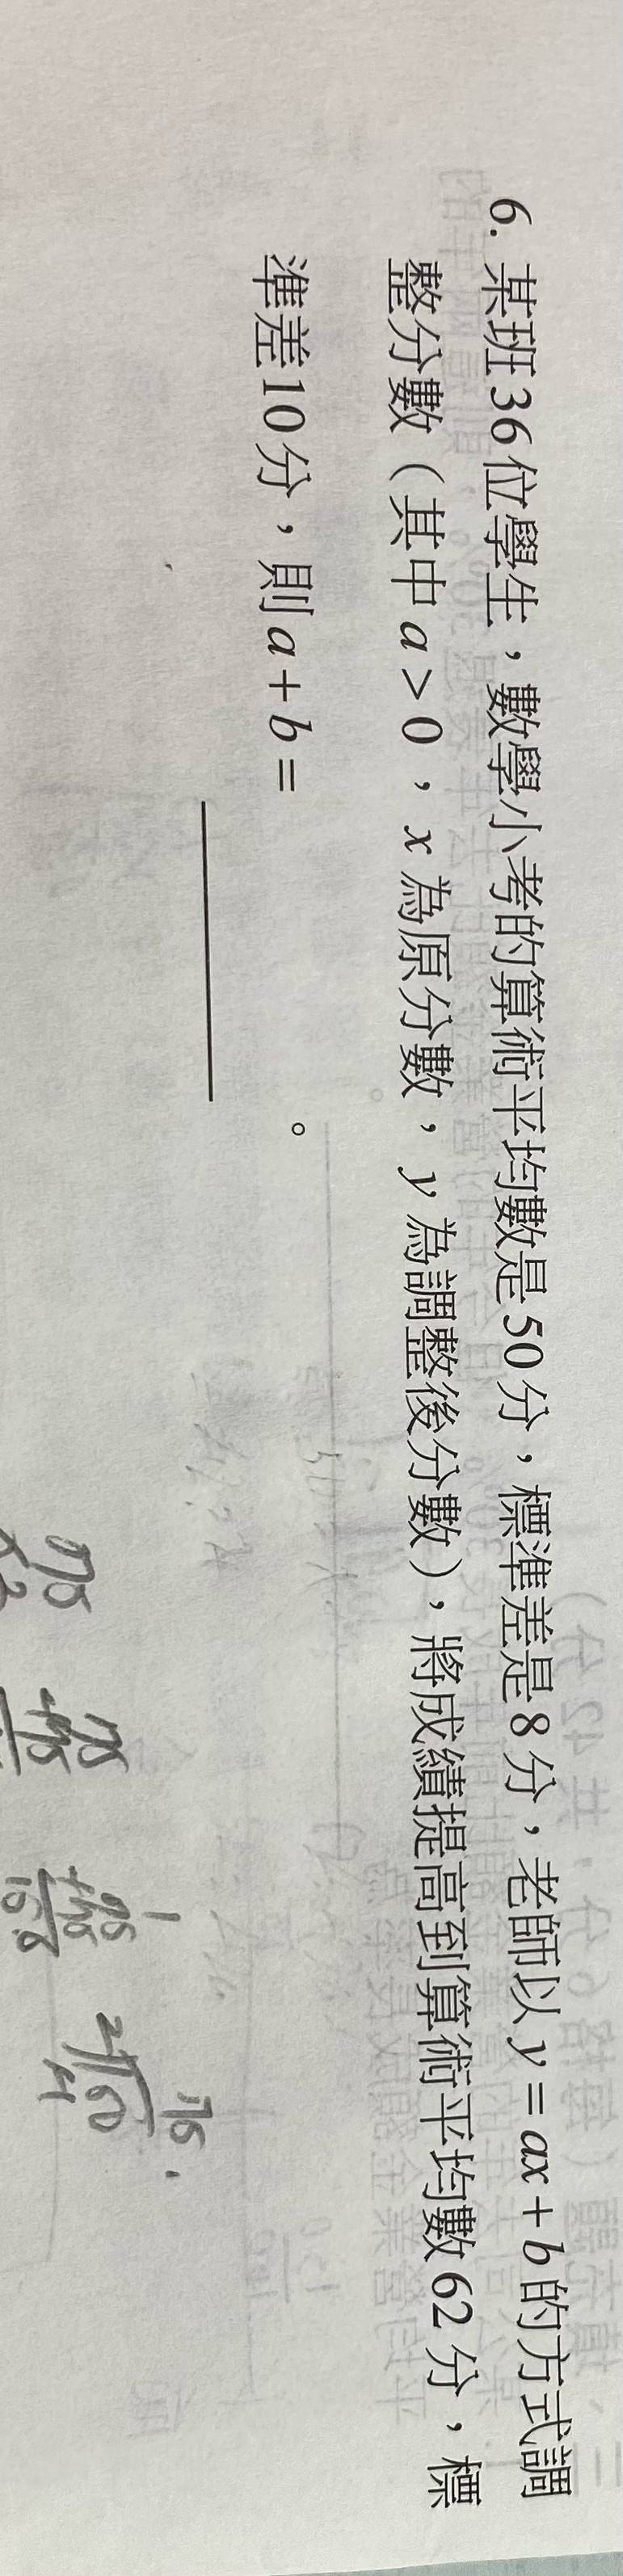 6. 某班36位學生，數學小考的算術平均數是50分，標準差是8分，老師以y=ax+b的方式調
整分數（其中a>0，x為原分數，y為調整後分數），將成績提高到算術平均數62分，標
準差10分，則a+b=＿＿＿＿。